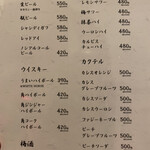 生ビール 580円
瓶ビール 580円
シャンディガフ 500円
レッドアイ 500円
ノンアルコール
ビール 420円
ウイスキー
うまいハイボール 390円
角ハイボール 420円
角ジンジャー
ハイボール 480円
角コーク
ハイボール 480円
梅酒
レモンサワー
梅サワー 480円
緑茶ハイ 480円
ウーロンハイ 480円
カルピス
チューハイ 480円
カクテル
カシスオレンジ 500円
カシス
グレープフルーツ 500円
カシスソーダ 500円
カシスウーロン 500円
ファジーネーブル 500円
ピーチ
グレープフルーツ 500円
ピーチソーダ 500円